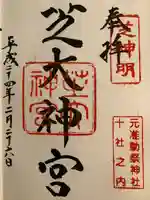 奉拝
芝神明
芝大神宮
元准勅祭神社
十社之内
平成二十四年二月二十六日